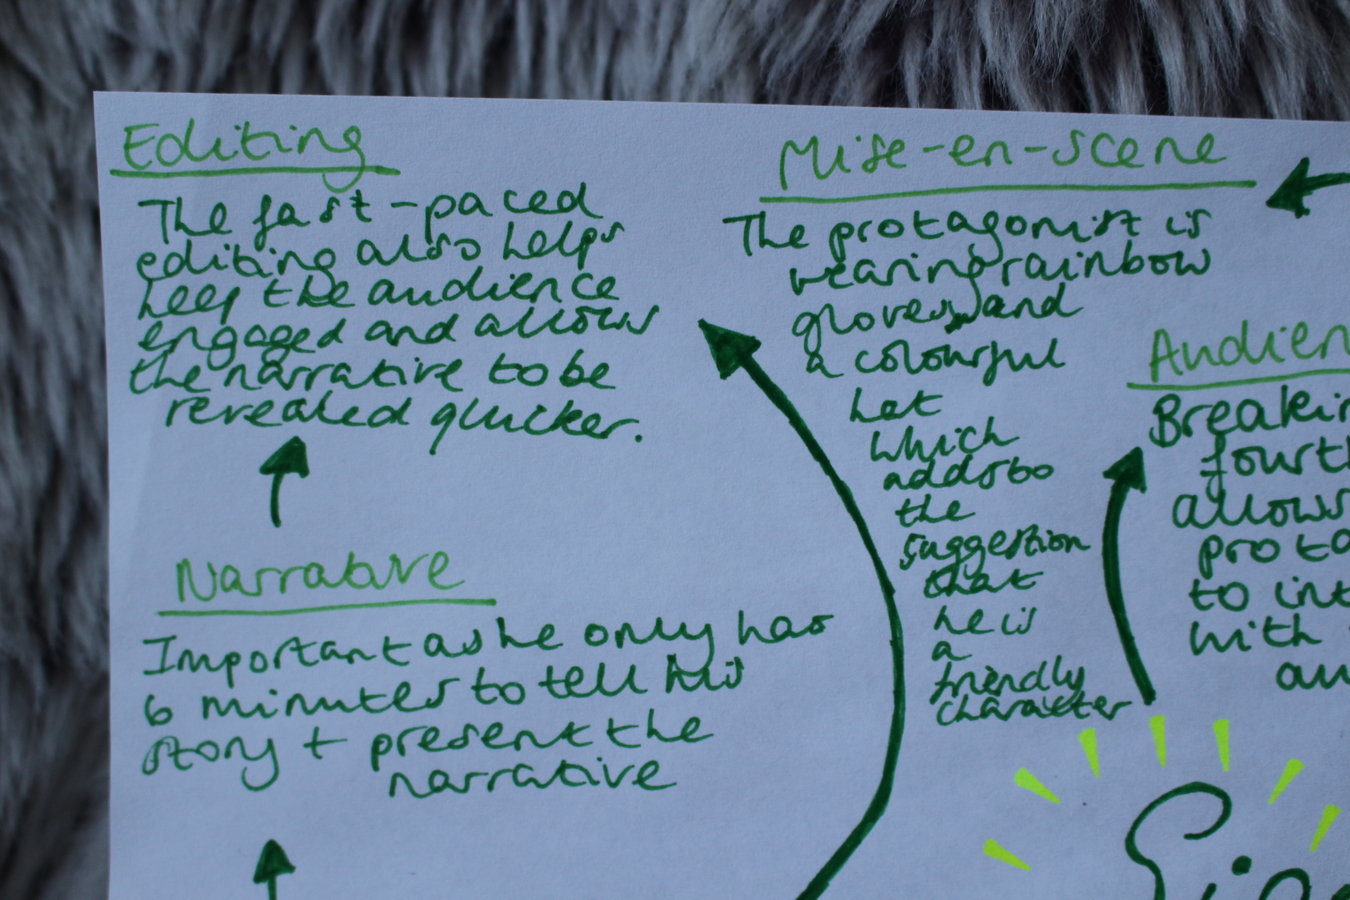 Editing
The fast-paced
editing also helps
keep the audience
engaged and allows
the narrative to be
revealed quicker.
Narrative
Important as he only has
6 minutes to tell his
story + present the
narrative
Mise-en-scene
The protagonist is
wearing rainbow
gloves and
a colourful
hat
which
adds to
the
suggestion
that
he is
a
friendly
character
Audien
Breakin
fourth
allows
prota
to int
with
au
Sig